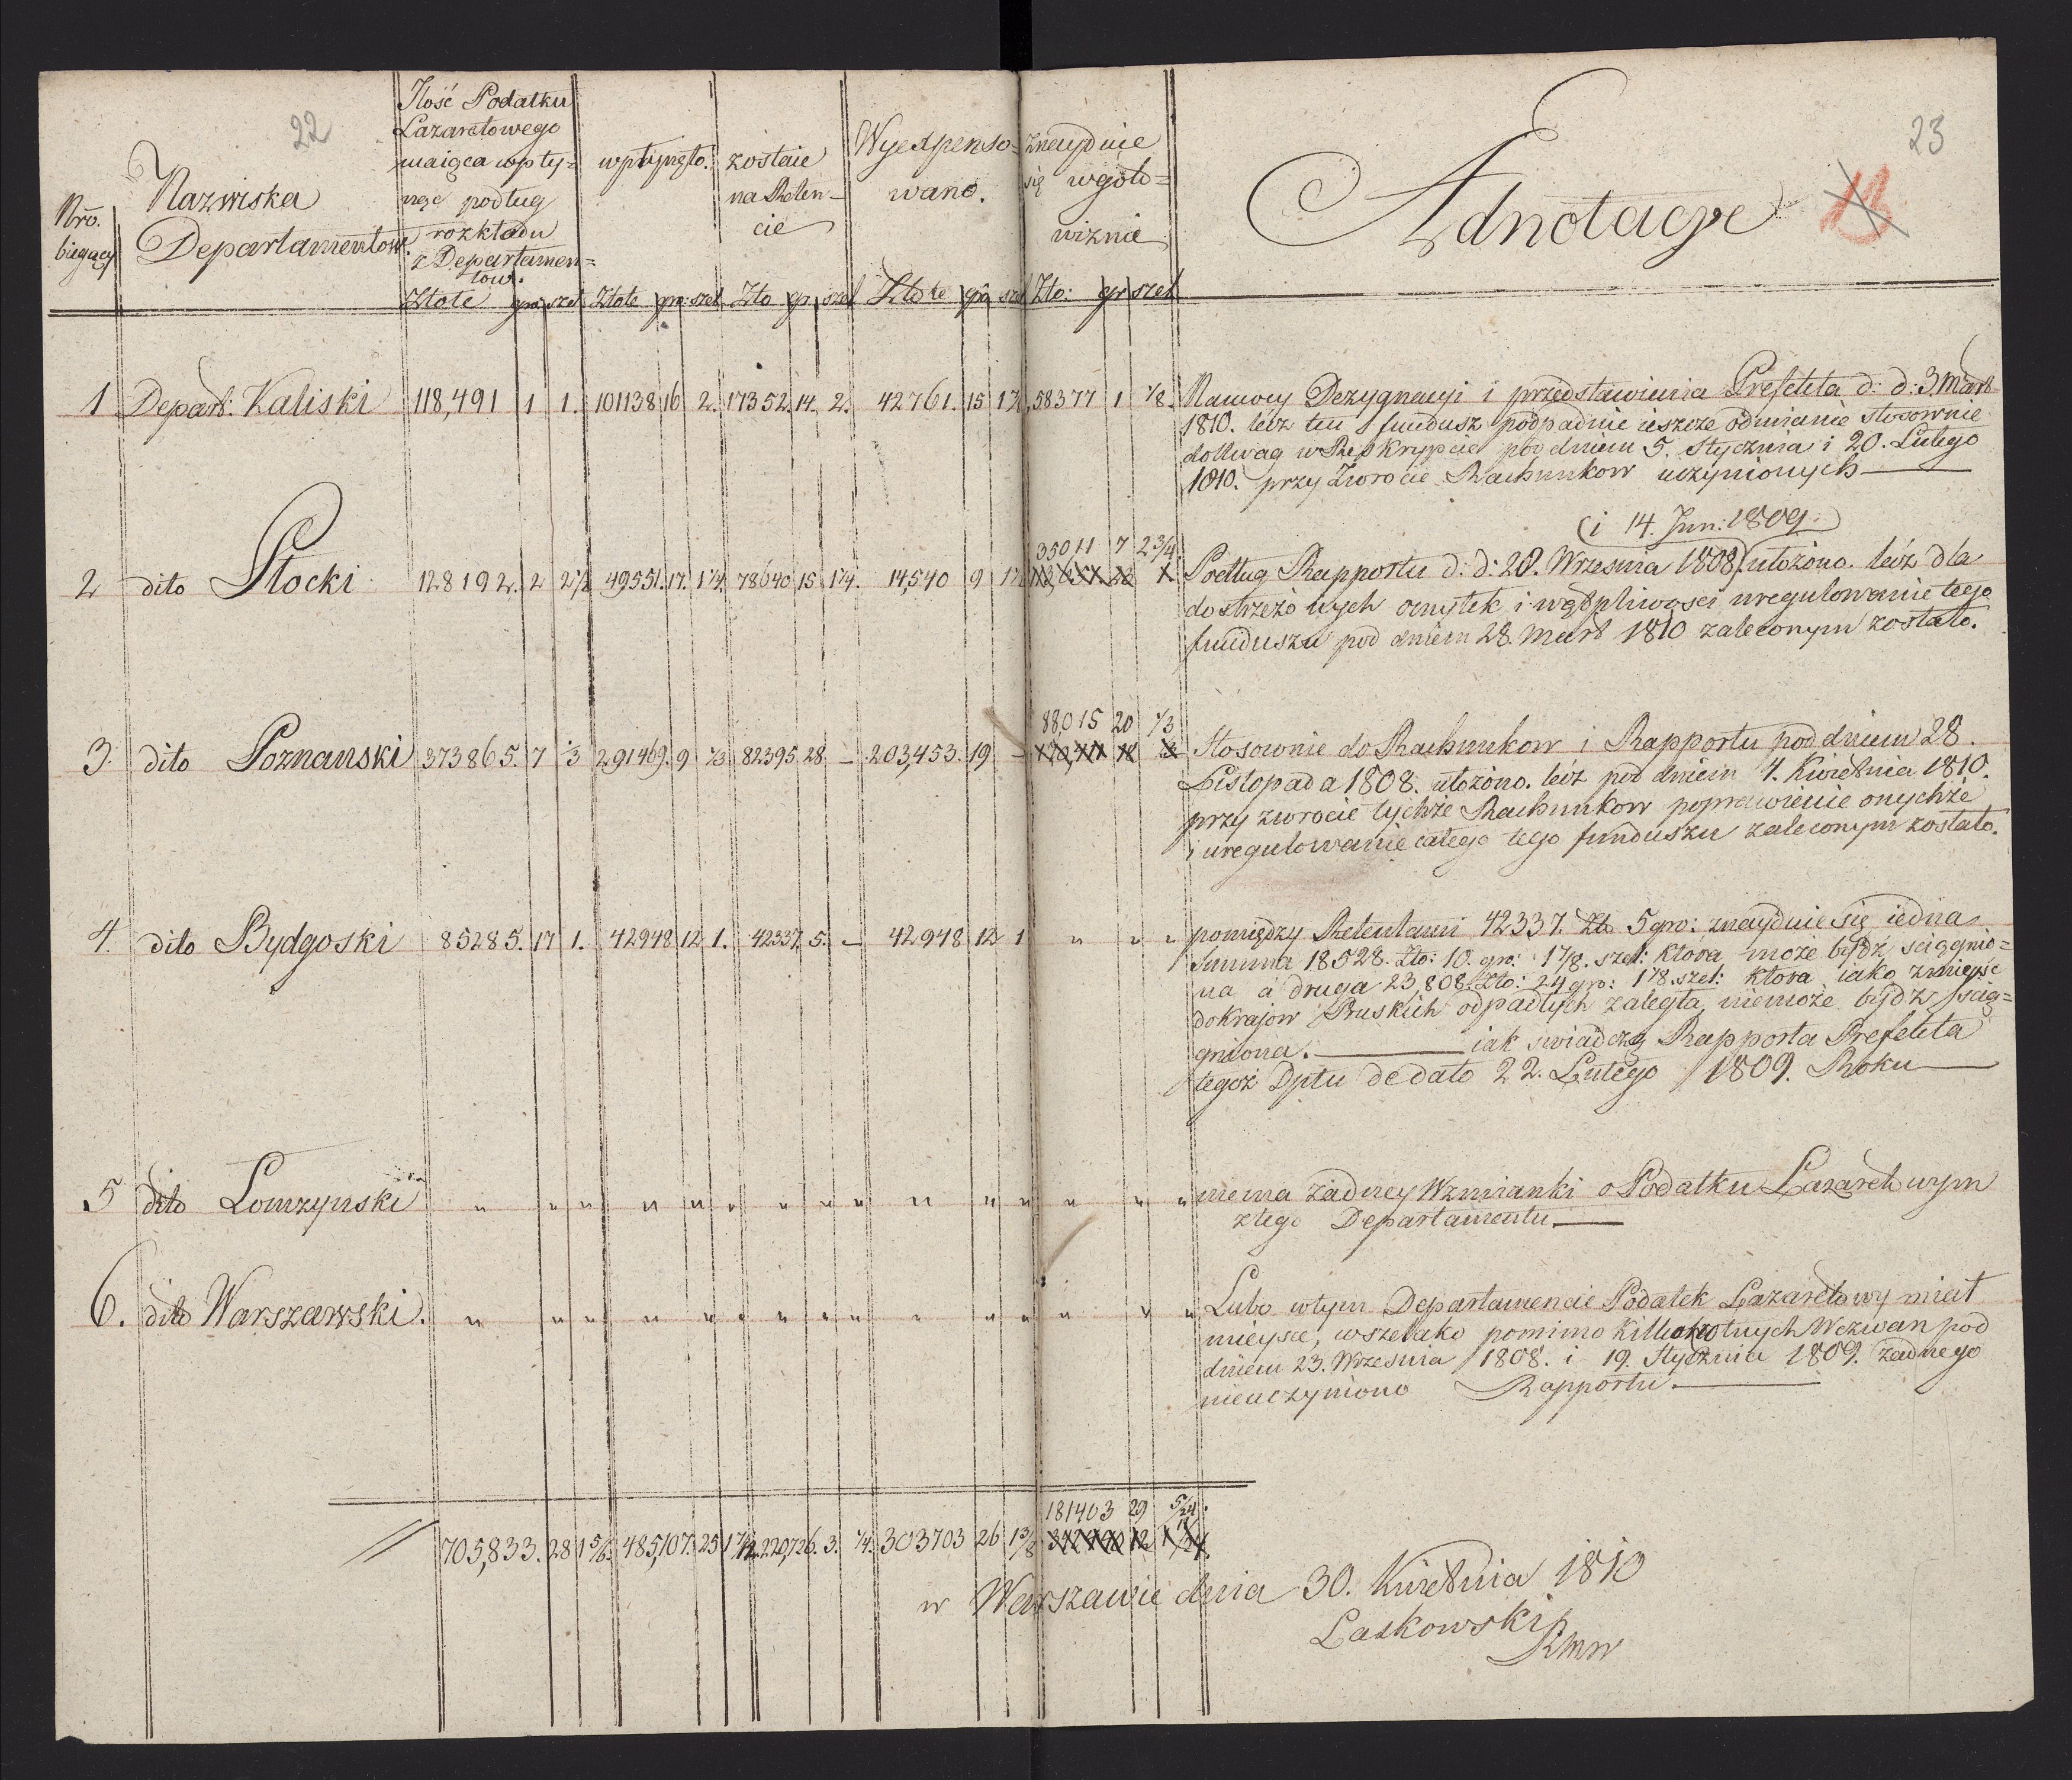 22
23
13
Nro. biegący
Nazwiska
Departamentow.
Ilość Podatku
Lazaretowego
maiąca wpły=
nąć podług
rozkładu
z Departamen=
tow.
wpłynęło.
zostaie
na Reten-
cie
Wyexpenso=
wano.
znayduie
się wgoto=
wiznie
Adnotacye
Złote gro szel Złote gro: szel Zło gr szel Złote gro szel Zło: gr szel
1 Depart: Kaliski 118,491 1 1. 101138 16 2. 17352. 14. 2. 42761. 15 1⅞ 58377 1 ⅛.
Namocy Dezygnacyi i przedstawienia Prefekta d: d: 3 Mart
1810. lecz ten fundusz podpadnie ieszcze odmianie stosownie
do Uwag w Reskrypcie pod dniem 5. Stycznia i 20. Lutego
1810. przy Zwrocie Rachunkow uczynionych
(i 14. Jun: 1809.)
35011 7 2¾
2 dito Płocki 128192. 2 2½ 49,551. 17. 1¼. 78640 15 1¼. 14,540 9 1½
Podług Rapportu d: d: 20. Wrzesnia 1808. ułożono. lecz dla
dostrzeżonych omyłek i wątpliwosci uregulowanie tego
funduszu pod dniem 28. Mart 1810 zaleconym zostało.
88,015 20 ⅓
3. dito Poznanski 373865. 7 ⅓ 291469. 9 ⅓ 82395 28 – 203,453. 19 –
Stosownie do Rachunkow i Rapportu pod dniem 28.
Listopada 1808. ułożono. lecz pod dniem 4. Kwietnia 1810.
przy zwrocie tychże Rachunkow poprawienie onychże
i uregulowanie całego tego funduszu zaleconym zostało.
4. dito Bydgoski 85285. 17 1. 42948 12 1. 42337. 5. – 42948 12 1 " " "
pomiędzy Retentami 42337. Zło 5 gro: znayduie się iedna
Summa 18528. Zło: 10. gro: 1⅞. szel: ktora może bydź sciągnio=
na a druga 23,808. Zło: 24 gro: 1⅛. szel: ktora iako zmieysc
do krajow Pruskich odpadłych zaległa, niemoże bydź scią=
gniona. iak swiadczą Rapporta Prefekta
tegoż Dptu de dato 22. Lutego 1809. Roku
5 dito Lomzynski " " " " " " " " " " " " " " "
niema żadney Wzmianki o Podatku Lazaretowym
ztego Departamentu
6. dito Warszawski. " " " " " " " " " " " " " " "
Lubo wtym Departamencie Podatek Lazaretowy miał
mieysce, wszelako pomimo kilkokrotnych Wezwan pod
dniem 23. Wrzesnia 1808. i 19. Stycznia 1809. żadnego
nieuczyniono Rapportu.
181403 29 5/24.
705,833. 28 1⅚. 485,107. 25 1 7/12 220,726. 3. ¼. 303703 26 1⅜
w Warszawie dnia 30. Kwietnia 1810
Laskowski